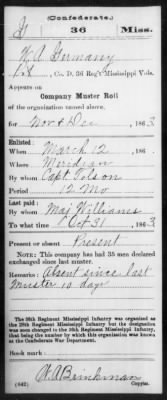 (Confederate.)
G 36 Miss.
W. A. Germany
Co. D, 36 Reg't Mississippi Vols.
Appears on
Company Muster Roll
of the organization named above,
for Nov & Dec, 1863.
Enlisted:
When March 12, 186
Where Meridian
By whom Capt. Tolson
Period 12 Mo
Last paid:
By whom Maj Williams
To what time Oct 31, 1863
Present or absent Present
NOTE: This company has had 35 men declared
exchanged since last muster.
Remarks: Absent since last
muster 10 days
The 36th Regiment Mississippi Infantry was organized
as the
Mississippi Infantry but the designation
was soon changed to the 36th Regiment Mississippi Infantry,
that being the number by which this organization was known
at the Confederate War Department.
Book mark:
(642) W. A. Brinkman
Copyist.